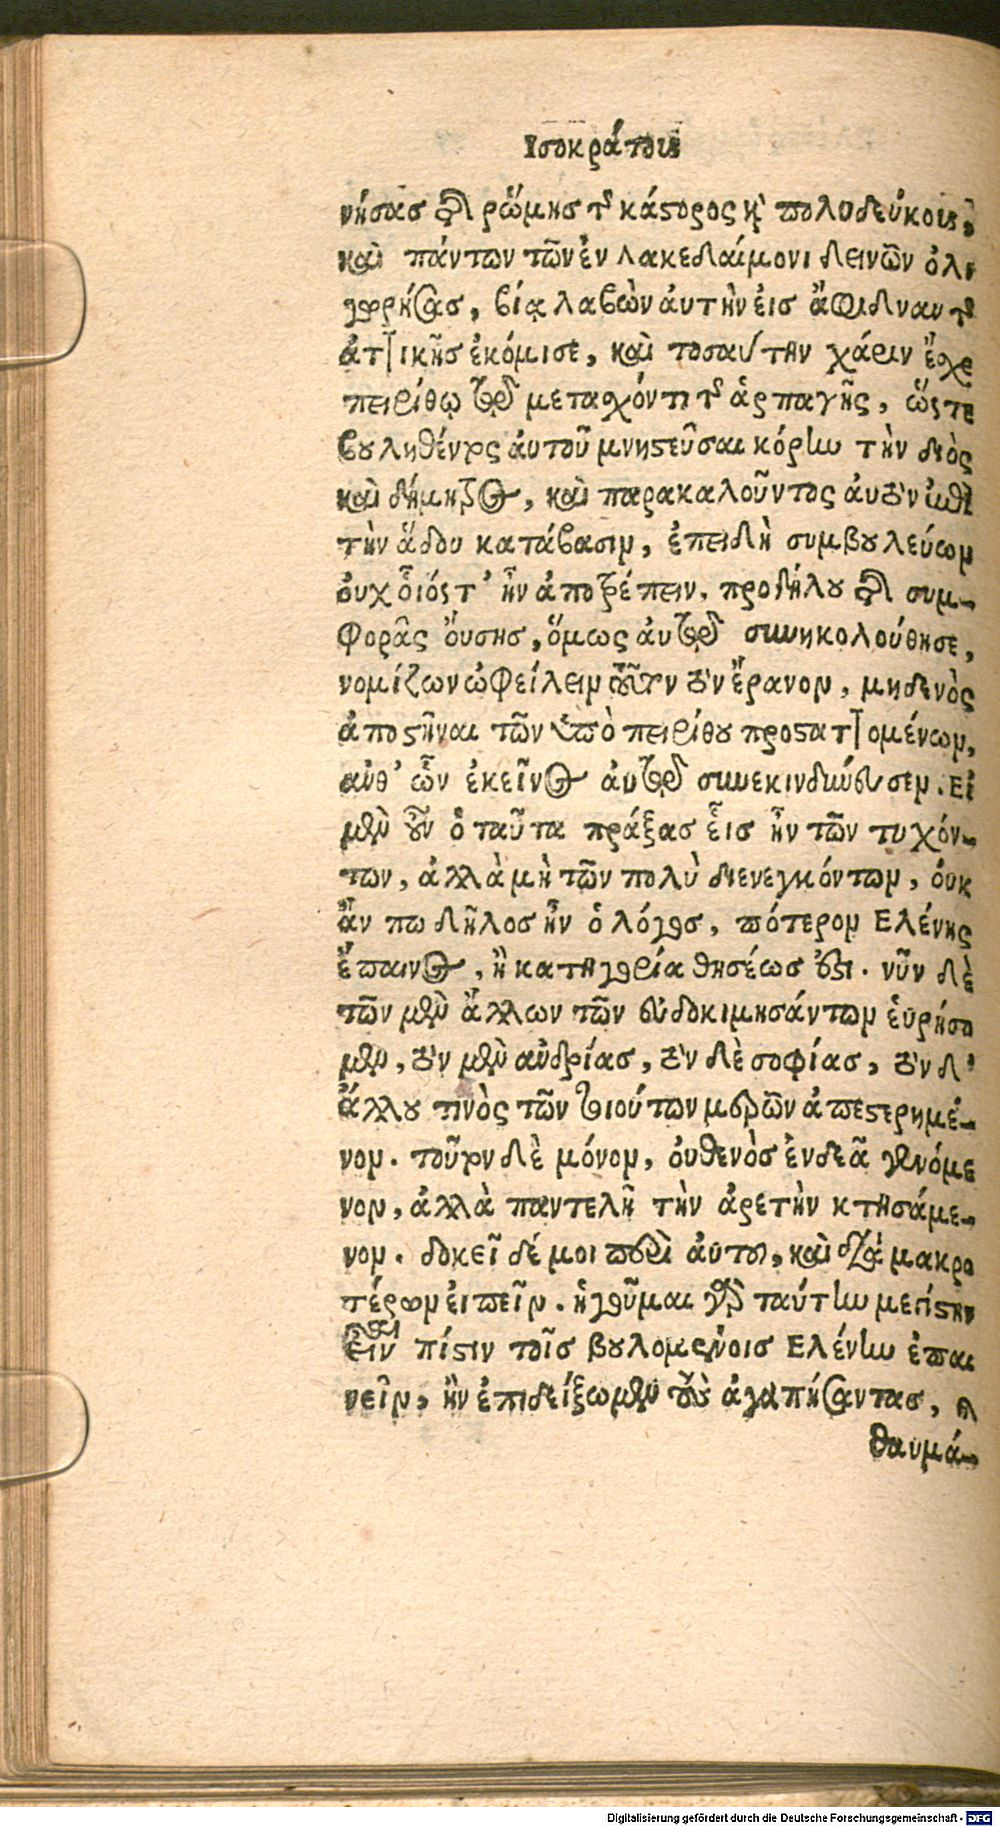 Ισοκράτους
νήσας δὲ ῥώμησ τῆς κάστορος καὶ πολυδεύκους,
καὶ πάντων τῶν ἐν λακεδαίμονι δεινῶν ὀλι
γωρήσας, βίᾳ λαβὼν ἀυτὴν ἐισ ἄφιδναν τῆς
ἀττικῆς ἐκόμισε, καὶ τοσαύτην χάριν ἔσχε
πειρίθῳ τῷ μετασχόντι τῆς ἁρπαγῆς, ὥστε
βουληθέντος ἀυτοῦ μνηστεῦσαι κόρην τὴν διὸς
καὶ δήμητρος, καὶ παρακαλοῦντος ἀυτὸν ἐπὶ
τὴν ἅδου κατάβασιν, ἐπειδὴ συμβουλεύων
ὀυχ οἷόστ' ἦν ἀποτρέπειν, προδήλου δὲ συμ-
φορᾶς ὄυσησ, ὅμως ἀυτῷ συνηκολούθησε,
νομίζων ὠφείλειν τοῦτον τὸν ἔρανον, μηδενὸς
ἀποστῆναι τῶν ὑπὸ πειρίθου προσταττομένων,
ἀυθ' ὧν ἐκεῖνος ἀυτῷ συνεκινδύνευσεν. Εἰ
μὲν οὖν ὁ ταῦτα πράξας εἷς ἦν τῶν τυχόν-
των, ἀλλὰ μὴ τῶν πολὺ διενεγκόντων, ὀυκ
ἄν πω δῆλοσ ἦν ὁ λόγος, πότερον Ελένης
ἔπαινος, ἢ κατηγορία θησέωσ ἐστι. νῦν δὲ
τῶν μὲν ἄλλων τῶν ἐυδοκιμησάντων ἑυρήσο
μεν, τὸν μὲν ἀνδρίας, τὸν δὲ σοφίας, τὸν δ'
ἄλλου τινὸς τῶν τοιούτων μερῶν ἀπεστερημέ-
νον. τοῦτον δὲ μόνον, ὀυθενὸσ ἐνδεᾶ γενόμε
νον, ἀλλὰ παντελῆ τὴν ἀρετὴν κτησάμε-
νον. δοκεῖ δέ μοι περὶ ἀυτοῦ, καὶ διὰ μακρο
τέρων ἐιπεῖν. ἡγοῦμαι γὰρ ταύτην μεγίστην
εἶναι πίστιν τοῖσ βουλομένοισ Ελένην ἐπαι
νεῖν, ἢν ἐπιδείξωμεν τοὺς ἀγαπήσαντας, καὶ
θαυμά-
Digitalisierung gefördert durch die Deutsche Forschungsgemeinschaft - DFG